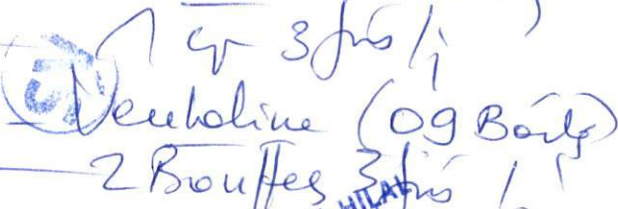 1 cp 3 fois / j
- Ventoline (09 Boites)
- 2 Bouffes 3 fois / j
HILAL